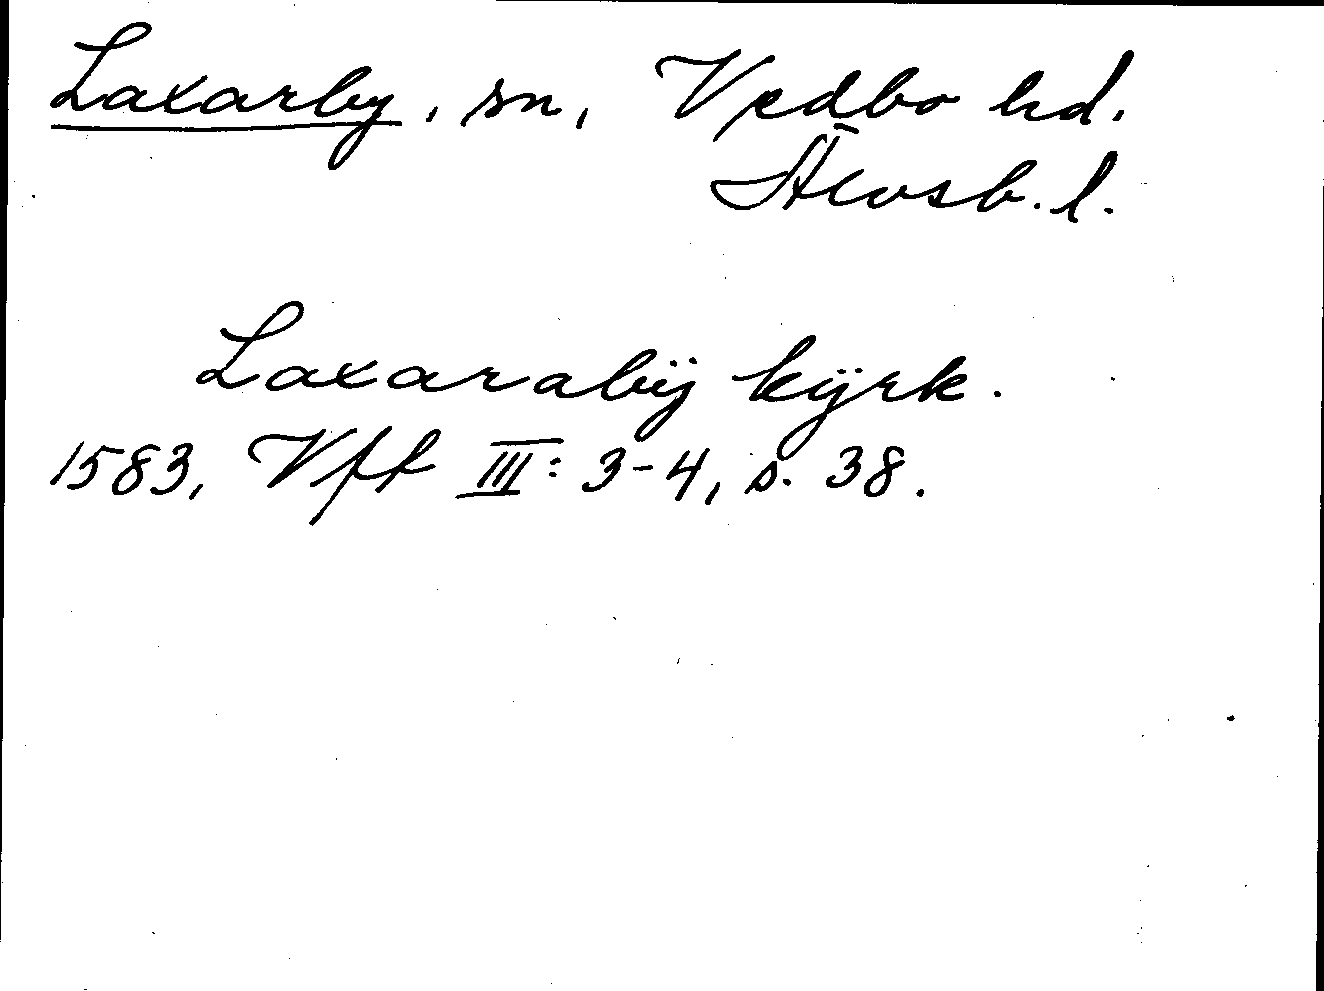 Laxarby, sn, Vedbo hd.
Älvsb. l.
Laxarabÿ kÿrk.
1583, Vft III: 3-4, s. 38.